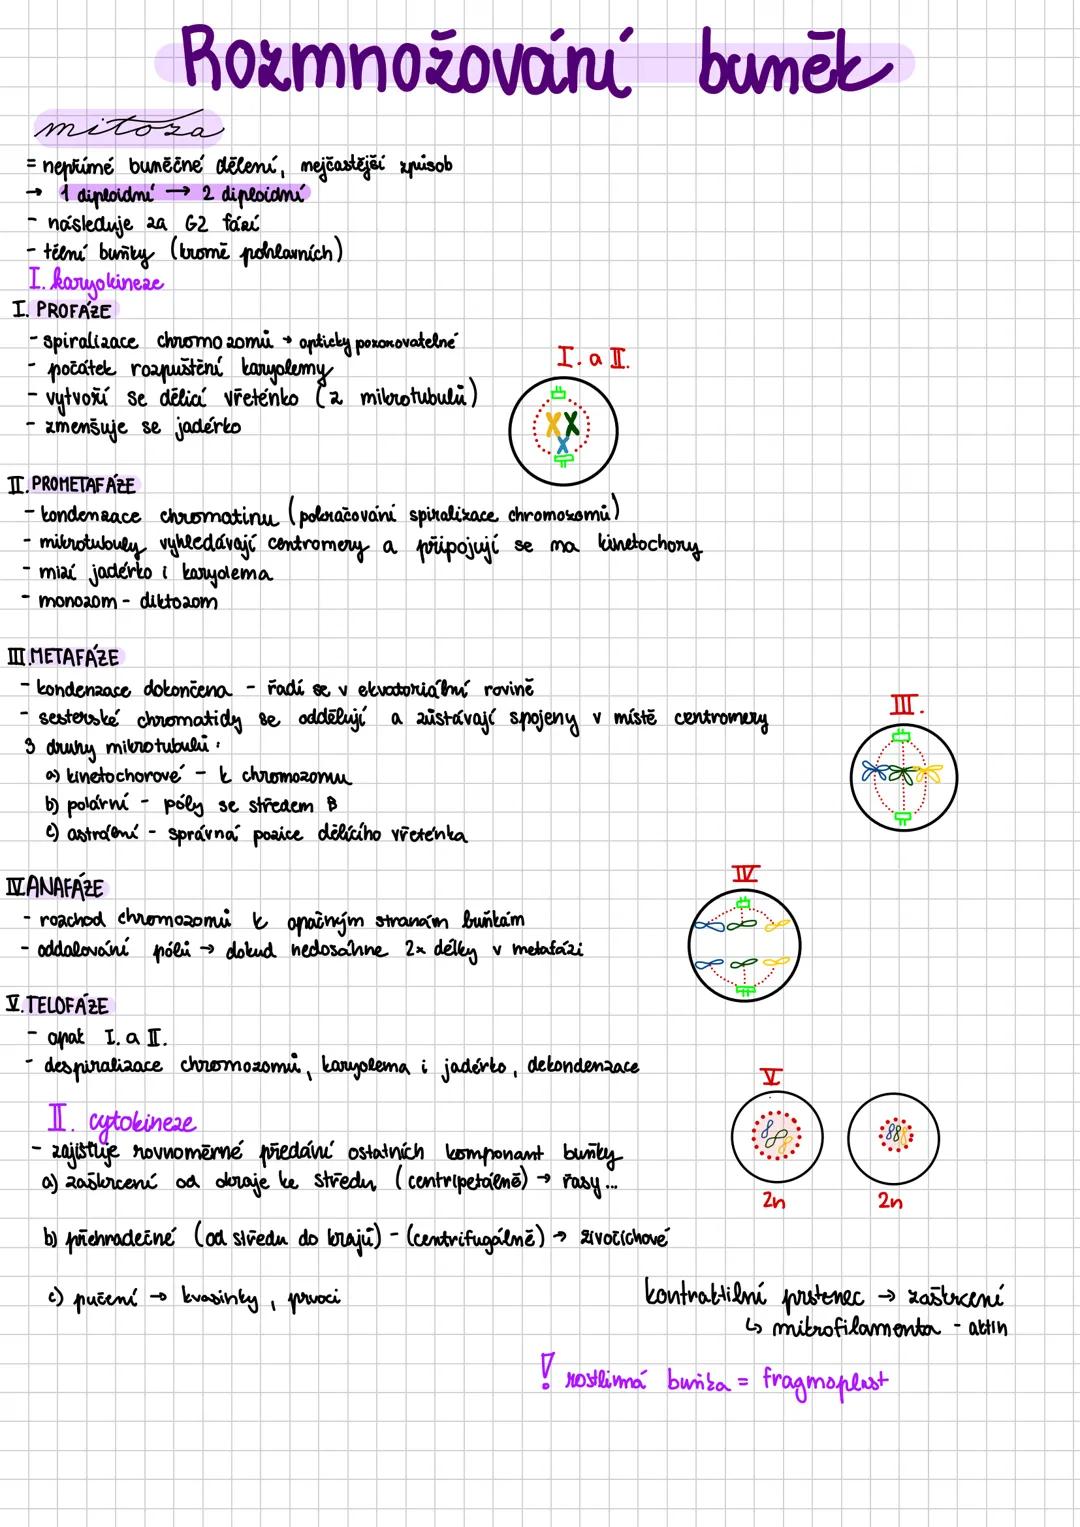 Rozmnožování buněk
mitóza
= nepřímé buněčné dělení, nejčastější způsob
→ 1 diploidní → 2 diploidní
- následuje za G2 fází
- tělní buňky (kromě pohlavních)
I. karyokineze
I. PROFÁZE
- spiralizace chromozomů → opticky pozorovatelné
- počátek rozpuštění karyolemy
- vytvoří se dělící vřeténko (z mikrotubulů)
- zmenšuje se jadérko
I. a II.
II. PROMETAFÁZE
- kondenzace chromatinu (pokračování spiralizace chromozomů)
- mikrotubuly vyhledávají centromery a připojují se na kinetochory
- mizí jadérko i karyolema
- monozom - diktozom
III. METAFÁZE
- kondenzace dokončena - řadí se v ekvatoriální rovině
- sesterské chromatidy se oddělují a zůstávají spojeny v místě centromery
3 druhy mikrotubulů:
a) kinetochorové - k chromozomu
b) polární - póly se středem B
c) astrální - správná pozice dělícího vřeténka
III.
IV. ANAFÁZE
- rozchod chromozomů k opačným stranám buňkám
- oddalování pólů → dokud nedosáhne 2x délky v metafázi
IV
V. TELOFÁZE
- opak I. a II.
- despiralizace chromozomů, karyolema i jadérko, dekondenzace
V
2n
2n
II. cytokineze
- zajišťuje rovnoměrné předání ostatních komponant buňky
a) zaškrcení od okraje ke středu (centripetálně) → řasy...
b) přehradečné (od středu do krajů) - (centrifugálně) → živočichové
c) pučení → kvasinky, prvoci
kontraktilní prstenec → zaškrcení
↳ mikrofilamenta - aktin
! rostlinná buňka = fragmoplast